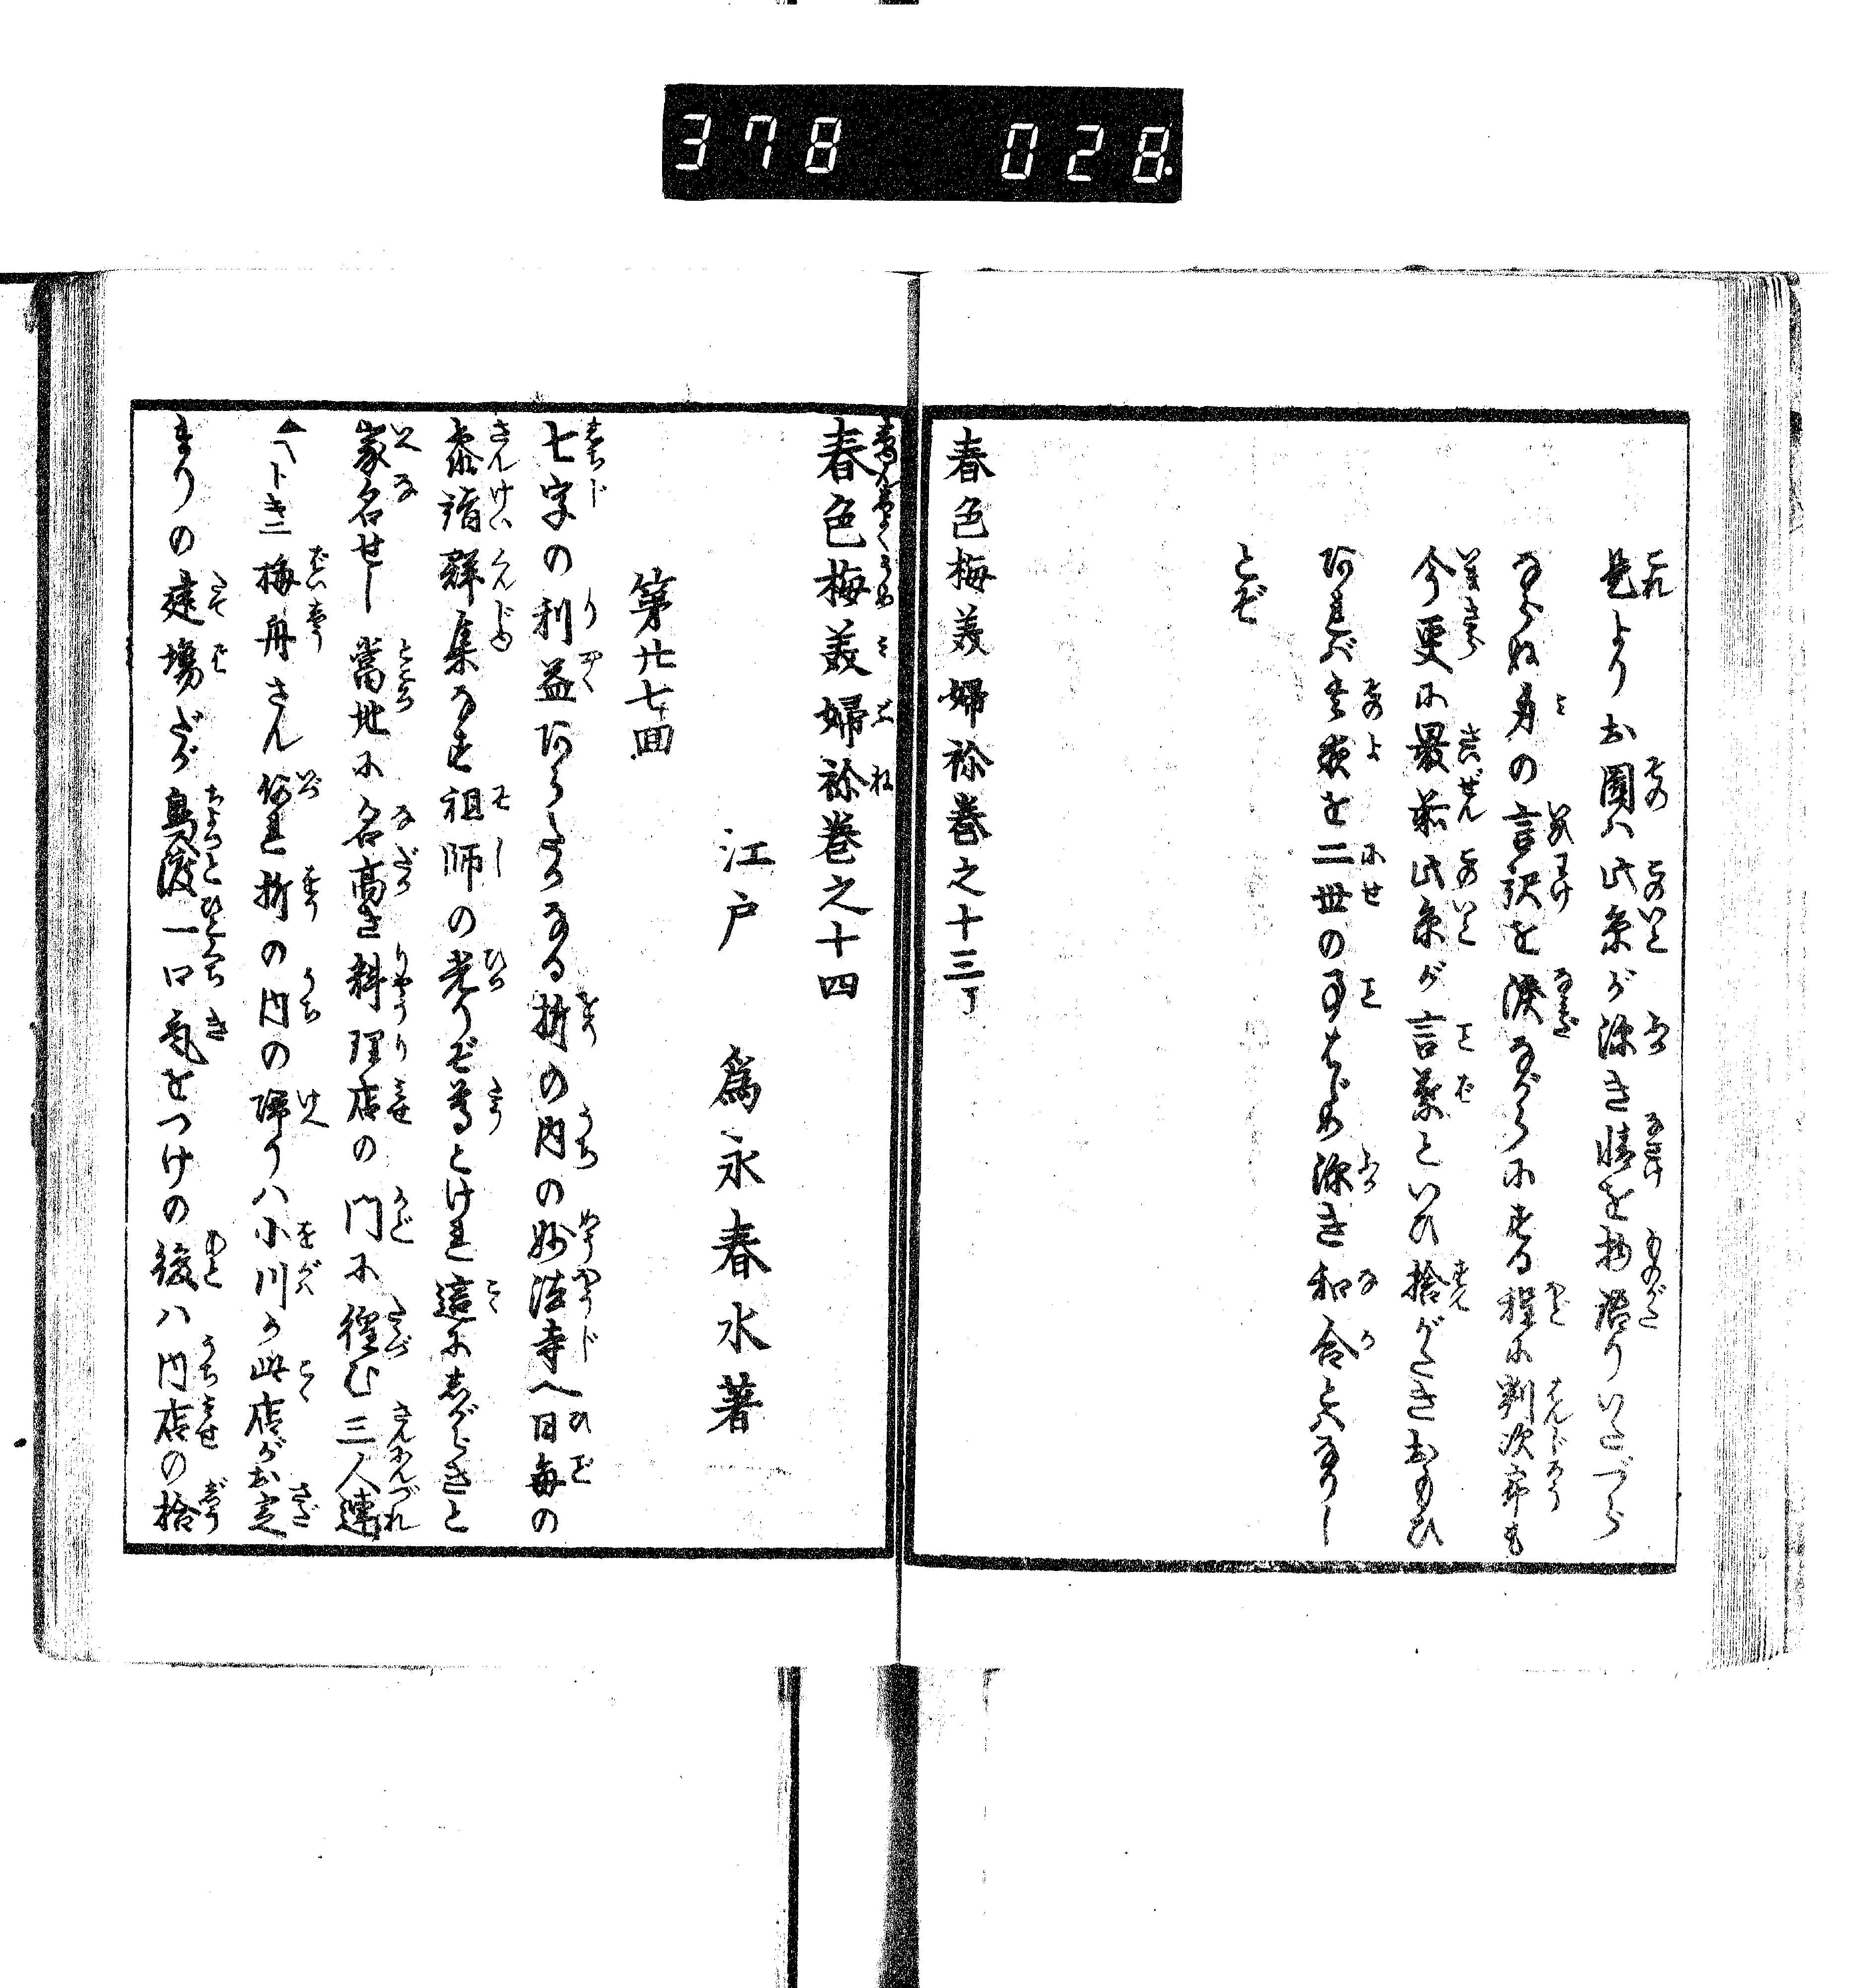 378 028
是よりお園ハ此糸が深き情を物語りいたづら
ならぬ身の言訳を涙ながらにする程に判次郎も
今更に最前此糸が言葉といひ捨がたきおもひ
あれバ其夜を二世の事はじめ深き和合となりし
とぞ
春色梅美婦祢巻之十三了
春色梅美婦祢巻之十四
江戸 為永春水著
第廿七回
七字の利益あらたなる堀の内の妙法寺へ日毎の
参詣群集なす祖師の光りぞ尊とけれ這にしがらきと
家名せし當地に名高き料理店の門に徨む三人連
▲へトキニ梅舟さん何れ堀の内の帰りハ小川か此店がお定
まりの建場だが鳥渡一口氣をつけの後ハ内店の拾